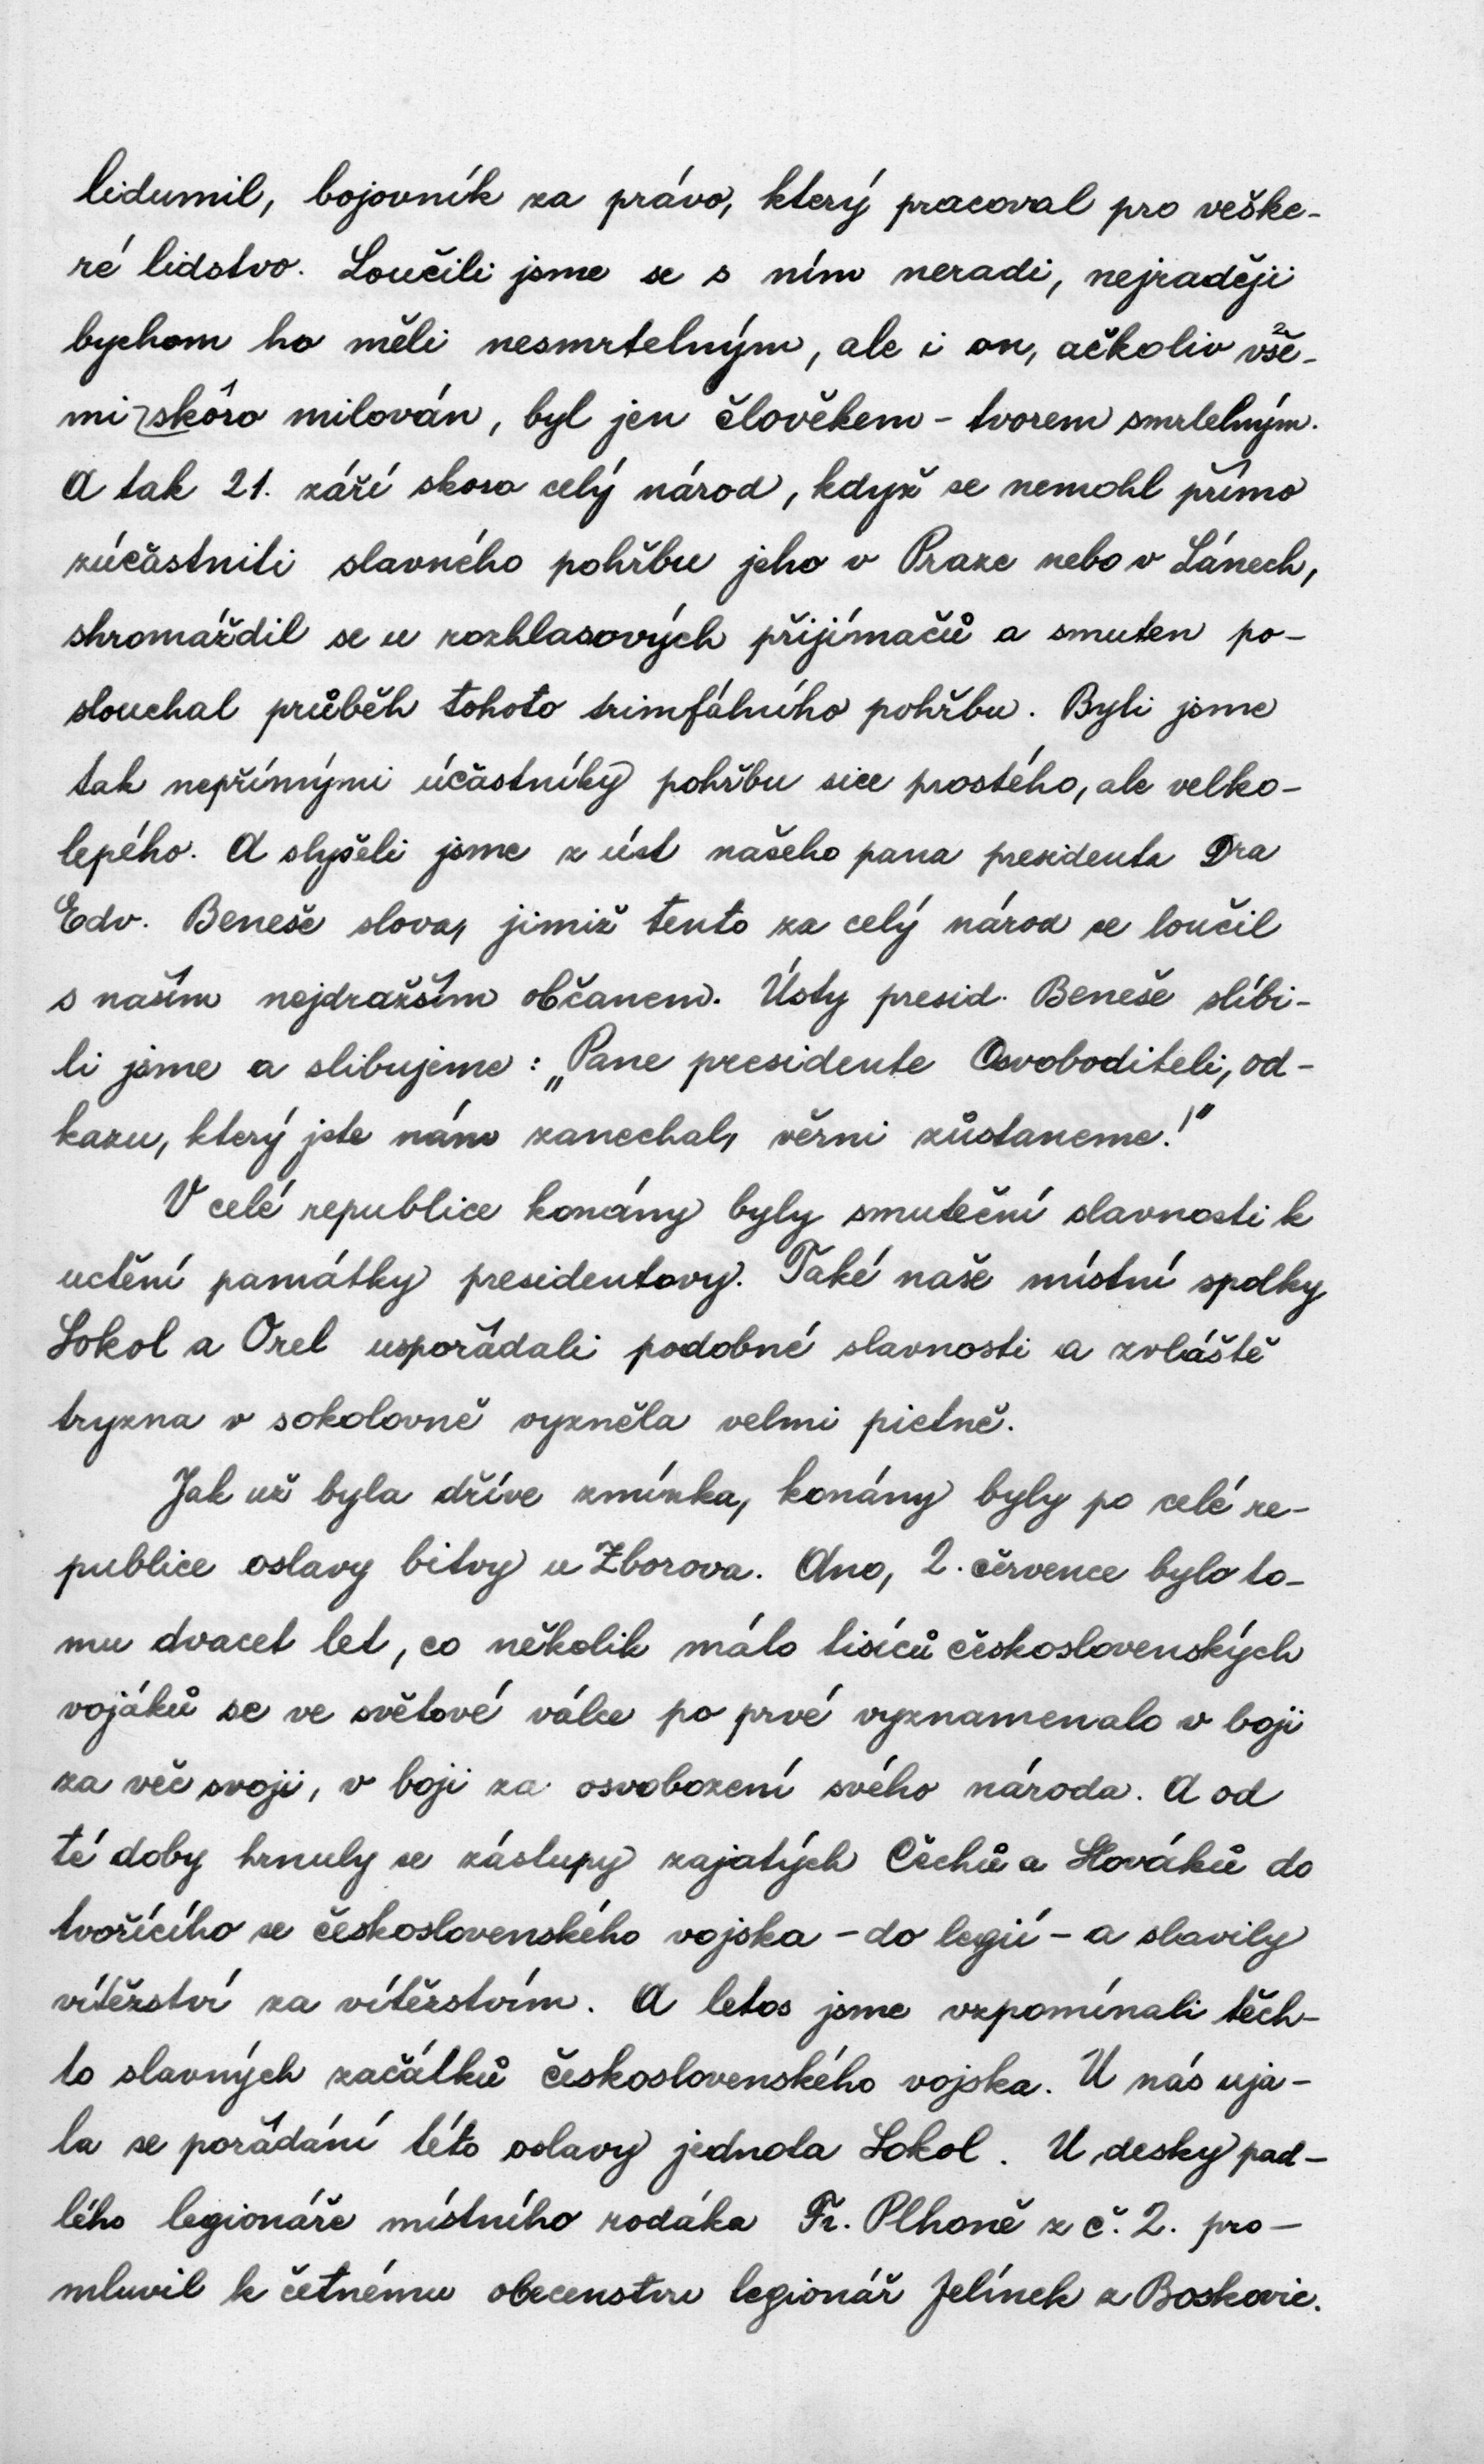 lidumil, bojovník za právo, který pracoval pro veške-
ré lidstvo. Loučili jsme se s ním neradi, nejraději
bychom ho měli nesmrtelným, ale i on, ačkoliv vše-
mi skoro milován, byl jen člověkem - tvorem smrtelným.
A tak 21. září skoro celý národ, když se nemohl přímo
zúčastniti slavného pohřbu jeho v Praze nebo v Lánech,
shromáždil se u rozhlasových přijímačů a smuten po-
slouchal průběh tohoto trimfálního pohřbu. Byli jsme
tak nepřímými účastníky pohřbu sice prostého, ale velko-
lepého. A slyšeli jsme z úst našeho pana presidenta Dra
Edv. Beneše slova, jimiž tento za celý národ se loučil
s naším nejdražším občanem. Ústy presid. Beneše slíbi-
li jsme a slibujeme: „Pane presidente Osvoboditeli, od-
kazu, který jste nám zanechal, věrni zůstaneme!"
V celé republice konány byly smuteční slavnosti k
uctění památky presidentovy. Také naše místní spolky
Sokol a Orel uspořádali podobné slavnosti a zvláště
tryzna v sokolovně vyzněla velmi pietně.
Jak už byla dříve zmínka, konány byly po celé re-
publice oslavy bitvy u Zborova. Ano, 2. července bylo to-
mu dvacet let, co několik málo tisíců československých
vojáků se ve světové válce po prvé vyznamenalo v boji
za věc svoji, v boji za osvobození svého národa. A od
té doby hrnuly se zástupy zajatých Čechů a Slováků do
tvořícího se československého vojska - do legií - a slavily
vítězství za vítězstvím. A letos jsme vzpomínali těch-
to slavných začátků československého vojska. U nás uja-
la se pořádání této oslavy jednota Sokol. U desky pad-
lého legionáře místního rodáka Fr. Plhoně z č. 2. pro-
mluvil k četnému obecenstvu legionář Jelínek z Boskovic.